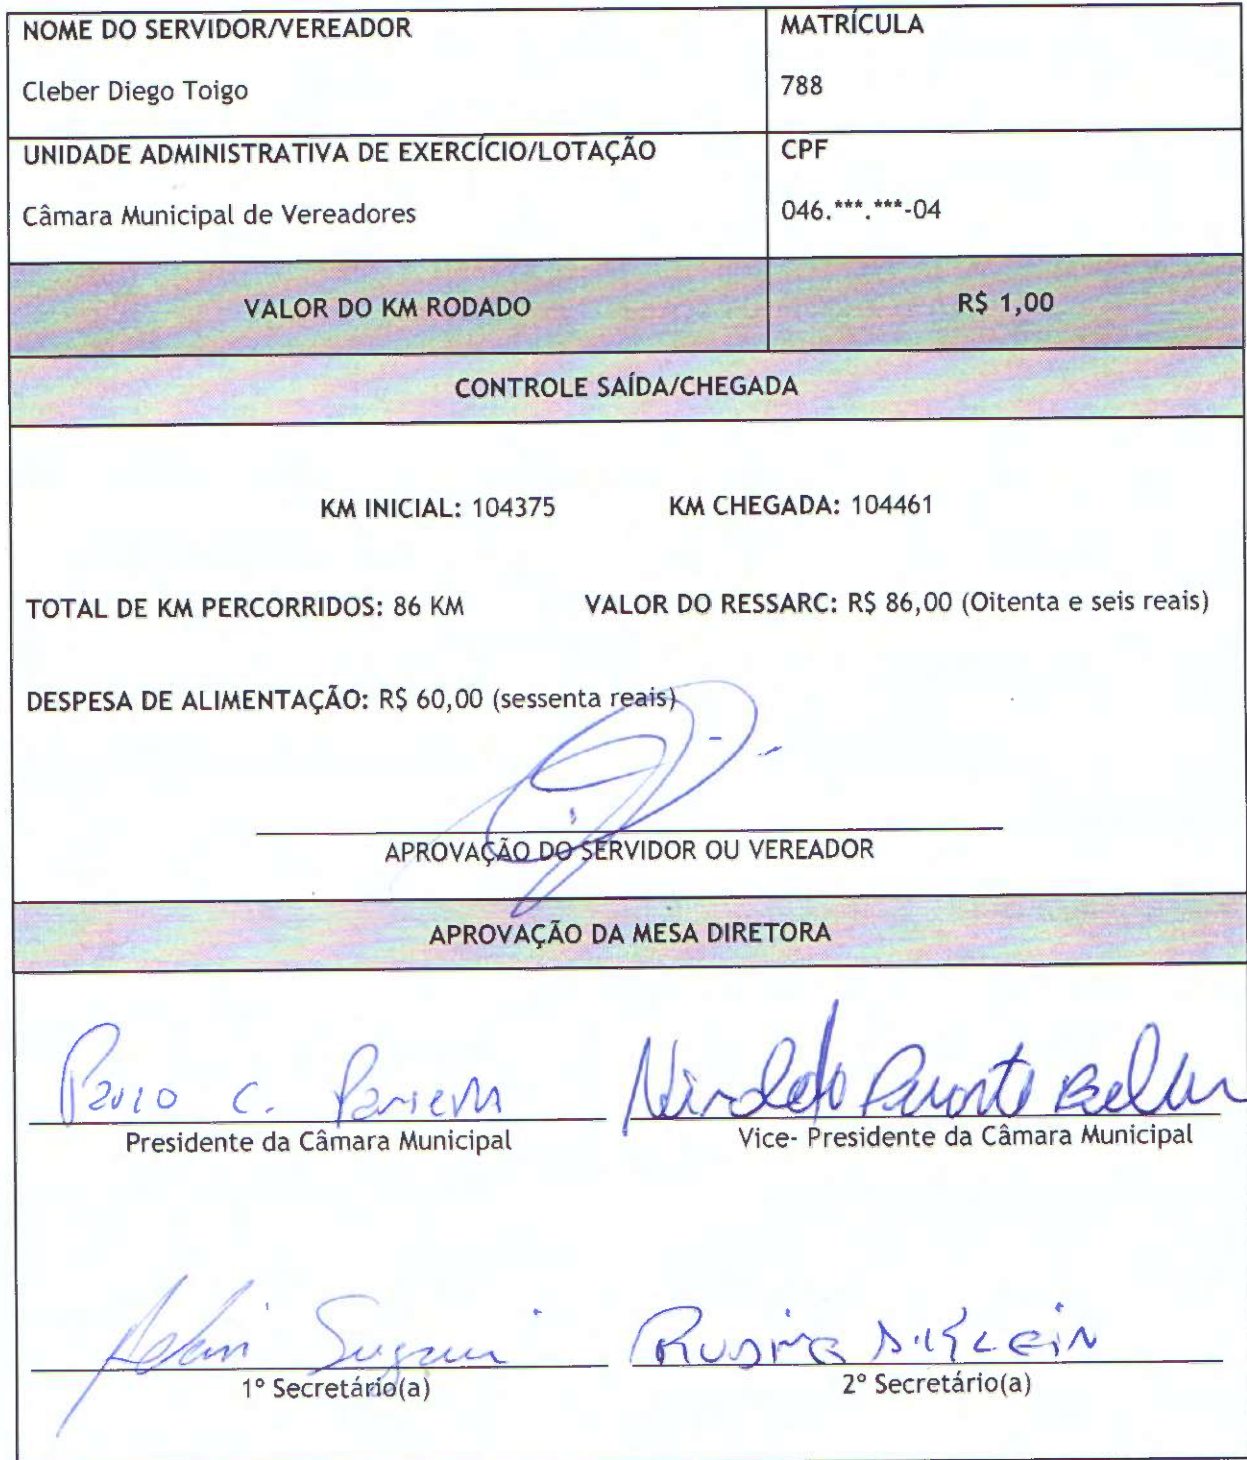 NOME DO SERVIDOR/VEREADOR
MATRÍCULA
Cleber Diego Toigo
788
UNIDADE ADMINISTRATIVA DE EXERCÍCIO/LOTAÇÃO
CPF
Câmara Municipal de Vereadores
046.***.***-04
VALOR DO KM RODADO
R$ 1,00
CONTROLE SAÍDA/CHEGADA
KM INICIAL: 104375 KM CHEGADA: 104461
TOTAL DE KM PERCORRIDOS: 86 KM VALOR DO RESSARC: R$ 86,00 (Oitenta e seis reais)
DESPESA DE ALIMENTAÇÃO: R$ 60,00 (sessenta reais)
APROVAÇÃO DO SERVIDOR OU VEREADOR
APROVAÇÃO DA MESA DIRETORA
C.
Presidente da Câmara Municipal
Vice- Presidente da Câmara Municipal
1º Secretário(a)
2º Secretário(a)